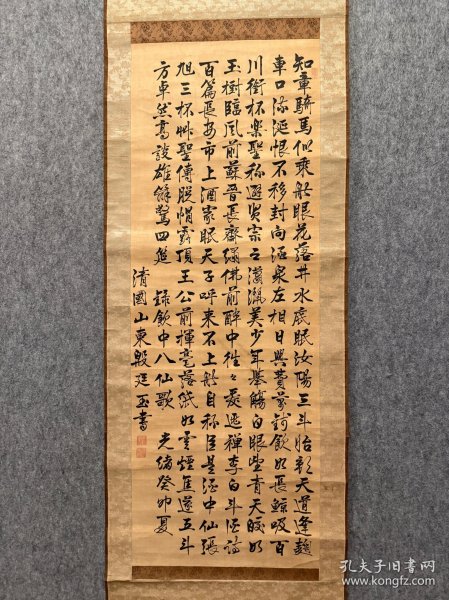 知章騎馬似乘船眼花落井水底眠汝陽三斗始朝天道逢麴
車口流涎恨不移封向酒泉左相日興費萬錢飲如長鯨吸百
川銜杯樂聖稱避賢宗之瀟灑美少年舉觴白眼望青天皎如
玉樹臨風前蘇晉長齋繡佛前醉中往々愛逃禪李白斗酒詩
百篇長安市上酒家眠天子呼来不上船自稱臣是酒中仙張
旭三杯艸聖傳脫帽露頂王公前揮毫落紙如雲煙焦遂五斗
方卓然高談雄辯驚四筵 錄飲中八仙歌 光緒癸卯夏
清國山東殷廷玉書
孔夫子旧书网
https://www.kongfz.com/